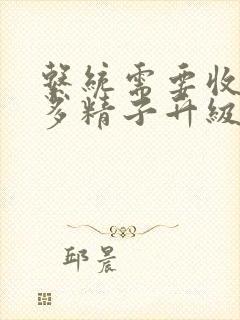 繫統需要收
多精子升級
邱晨